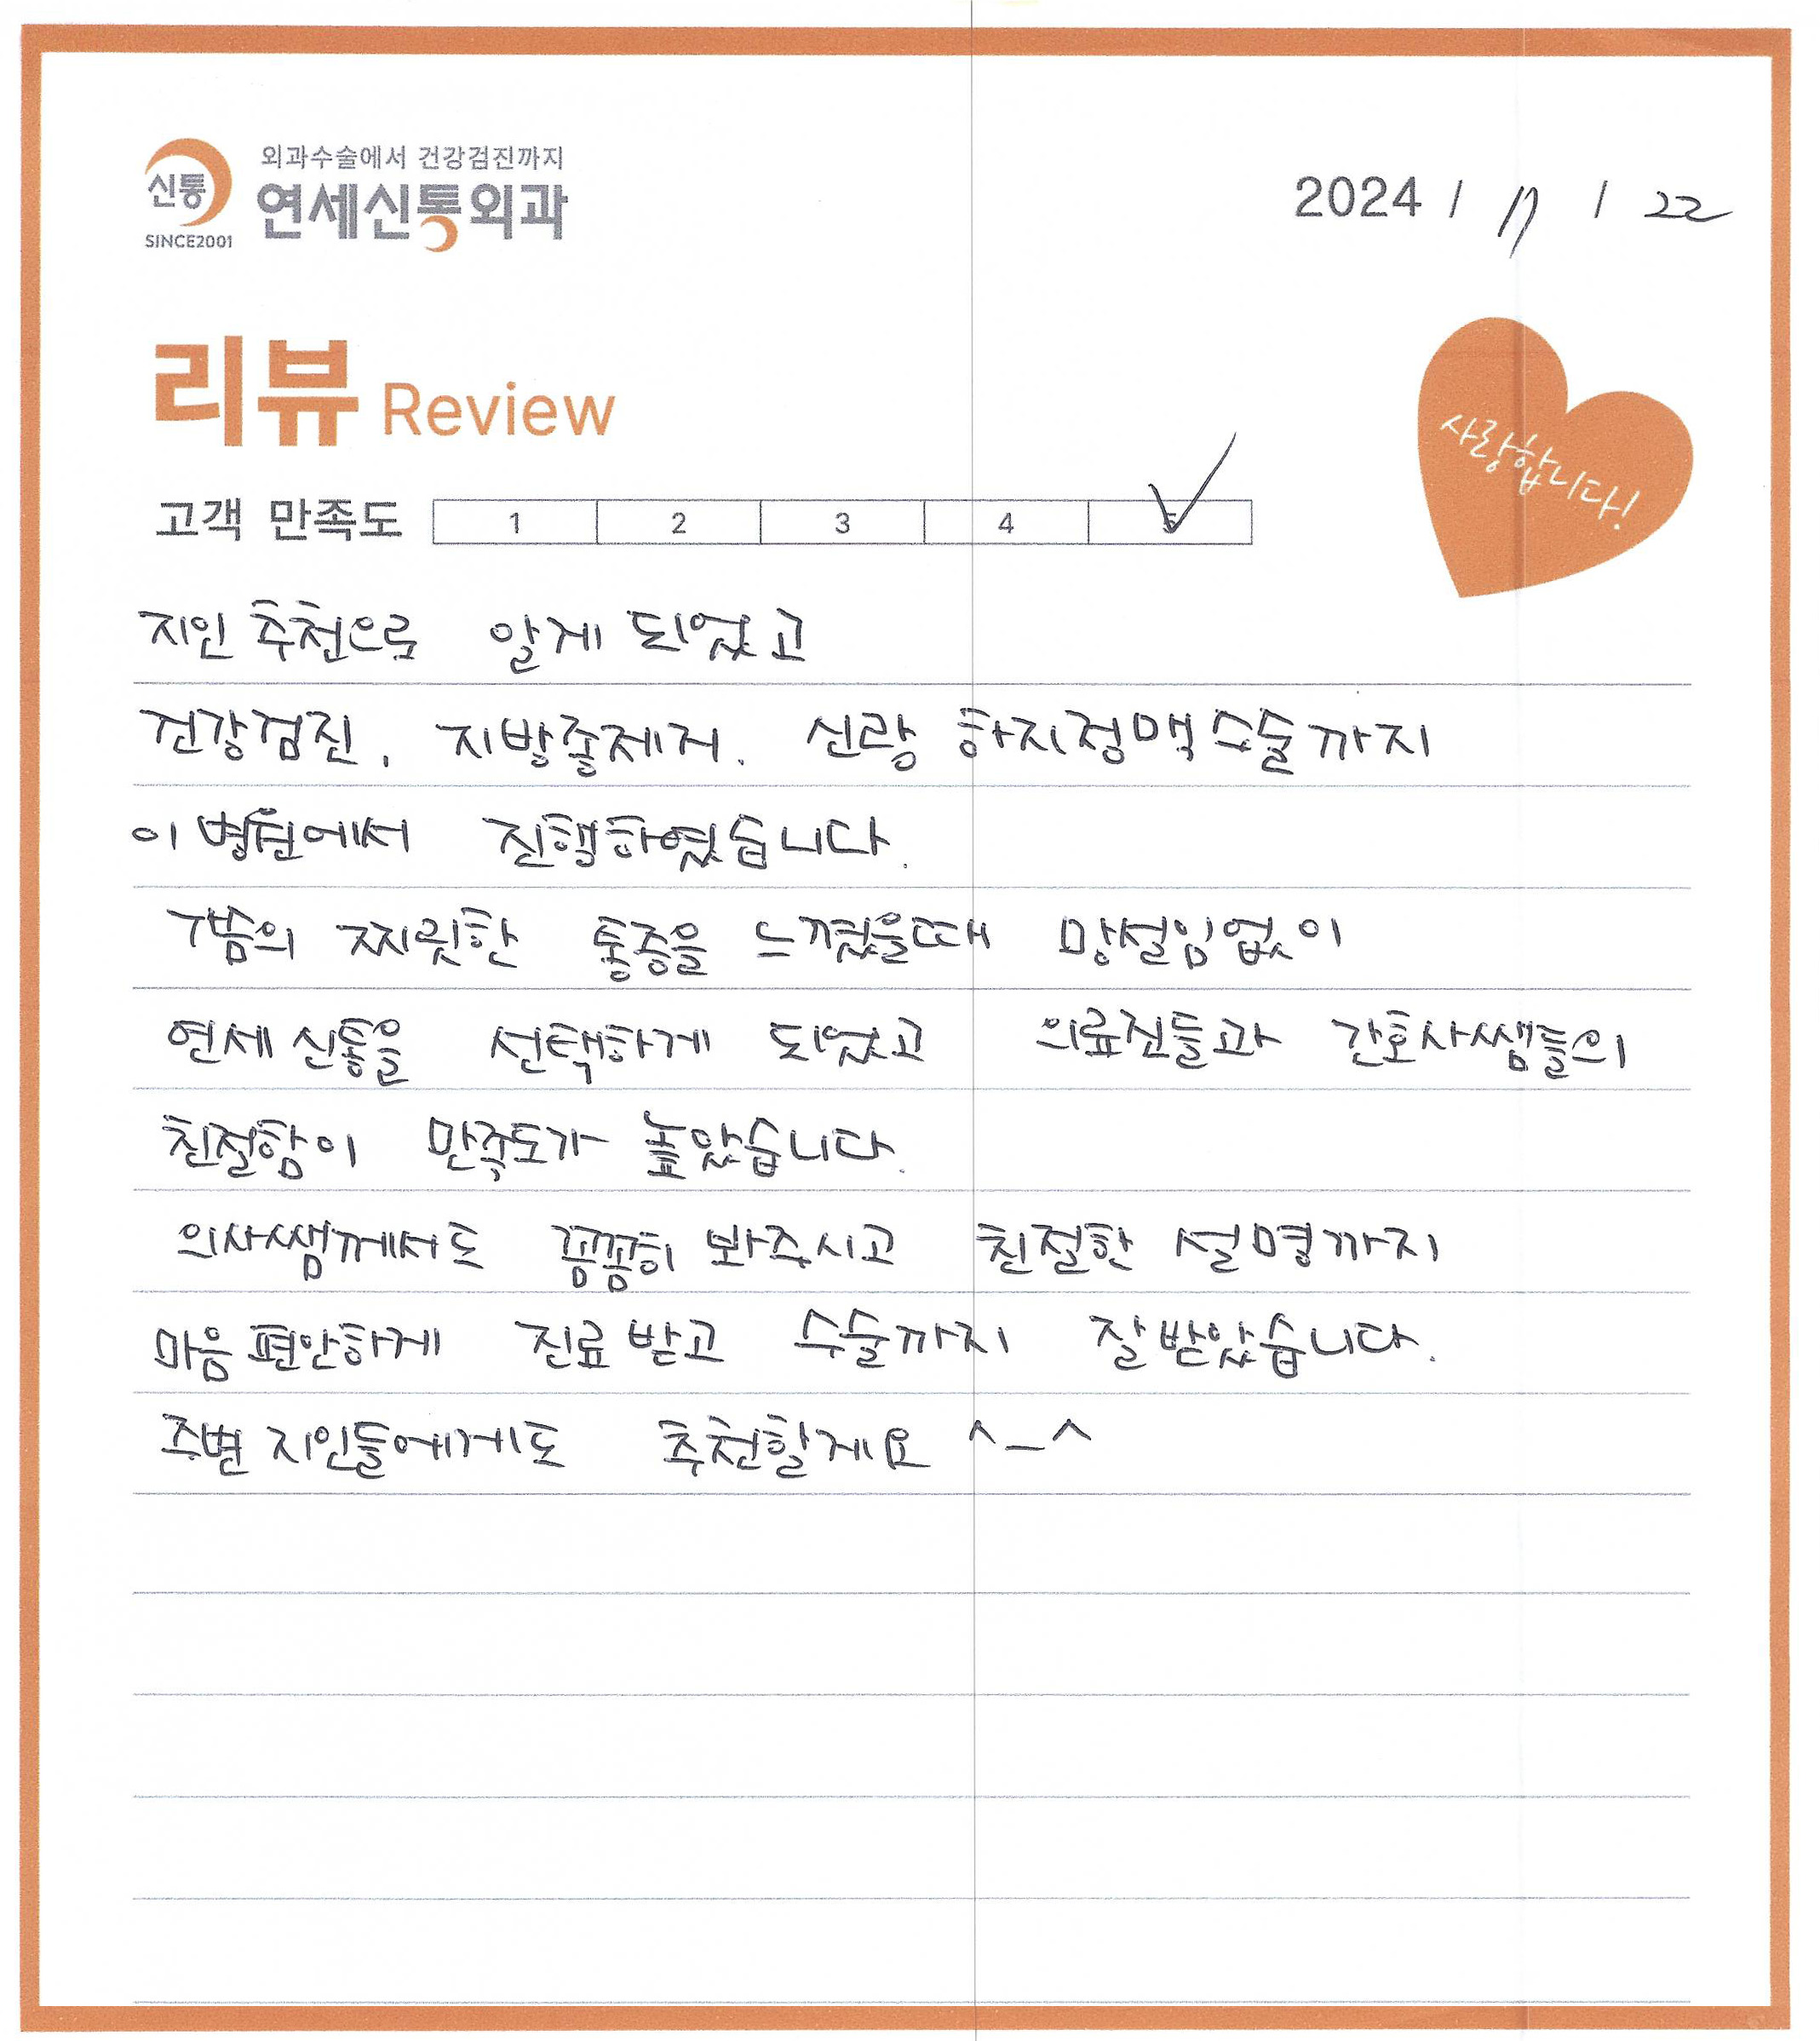 신통
SINCE2001
외과수술에서 건강검진까지
연세신통외과
2024 / 17 / 22
리뷰 Review
사랑합니다!
고객 만족도 1 2 3 4 5
지인 추천으로 알게 되었고
건강검진, 지방종제거. 신랑 하지정맥수술까지
이 병원에서 진행하였습니다.
가슴의 찌릿한 통증을 느꼈을때 망설임없이
연세신통을 선택하게 되었고 의료진들과 간호사쌤들의
친절함이 만족도가 높았습니다.
의사쌤께서도 꼼꼼히 봐주시고 친절한 설명까지
마음 편안하게 진료받고 수술까지 잘받았습니다.
주변 지인들에게도 추천할게요 ^_^